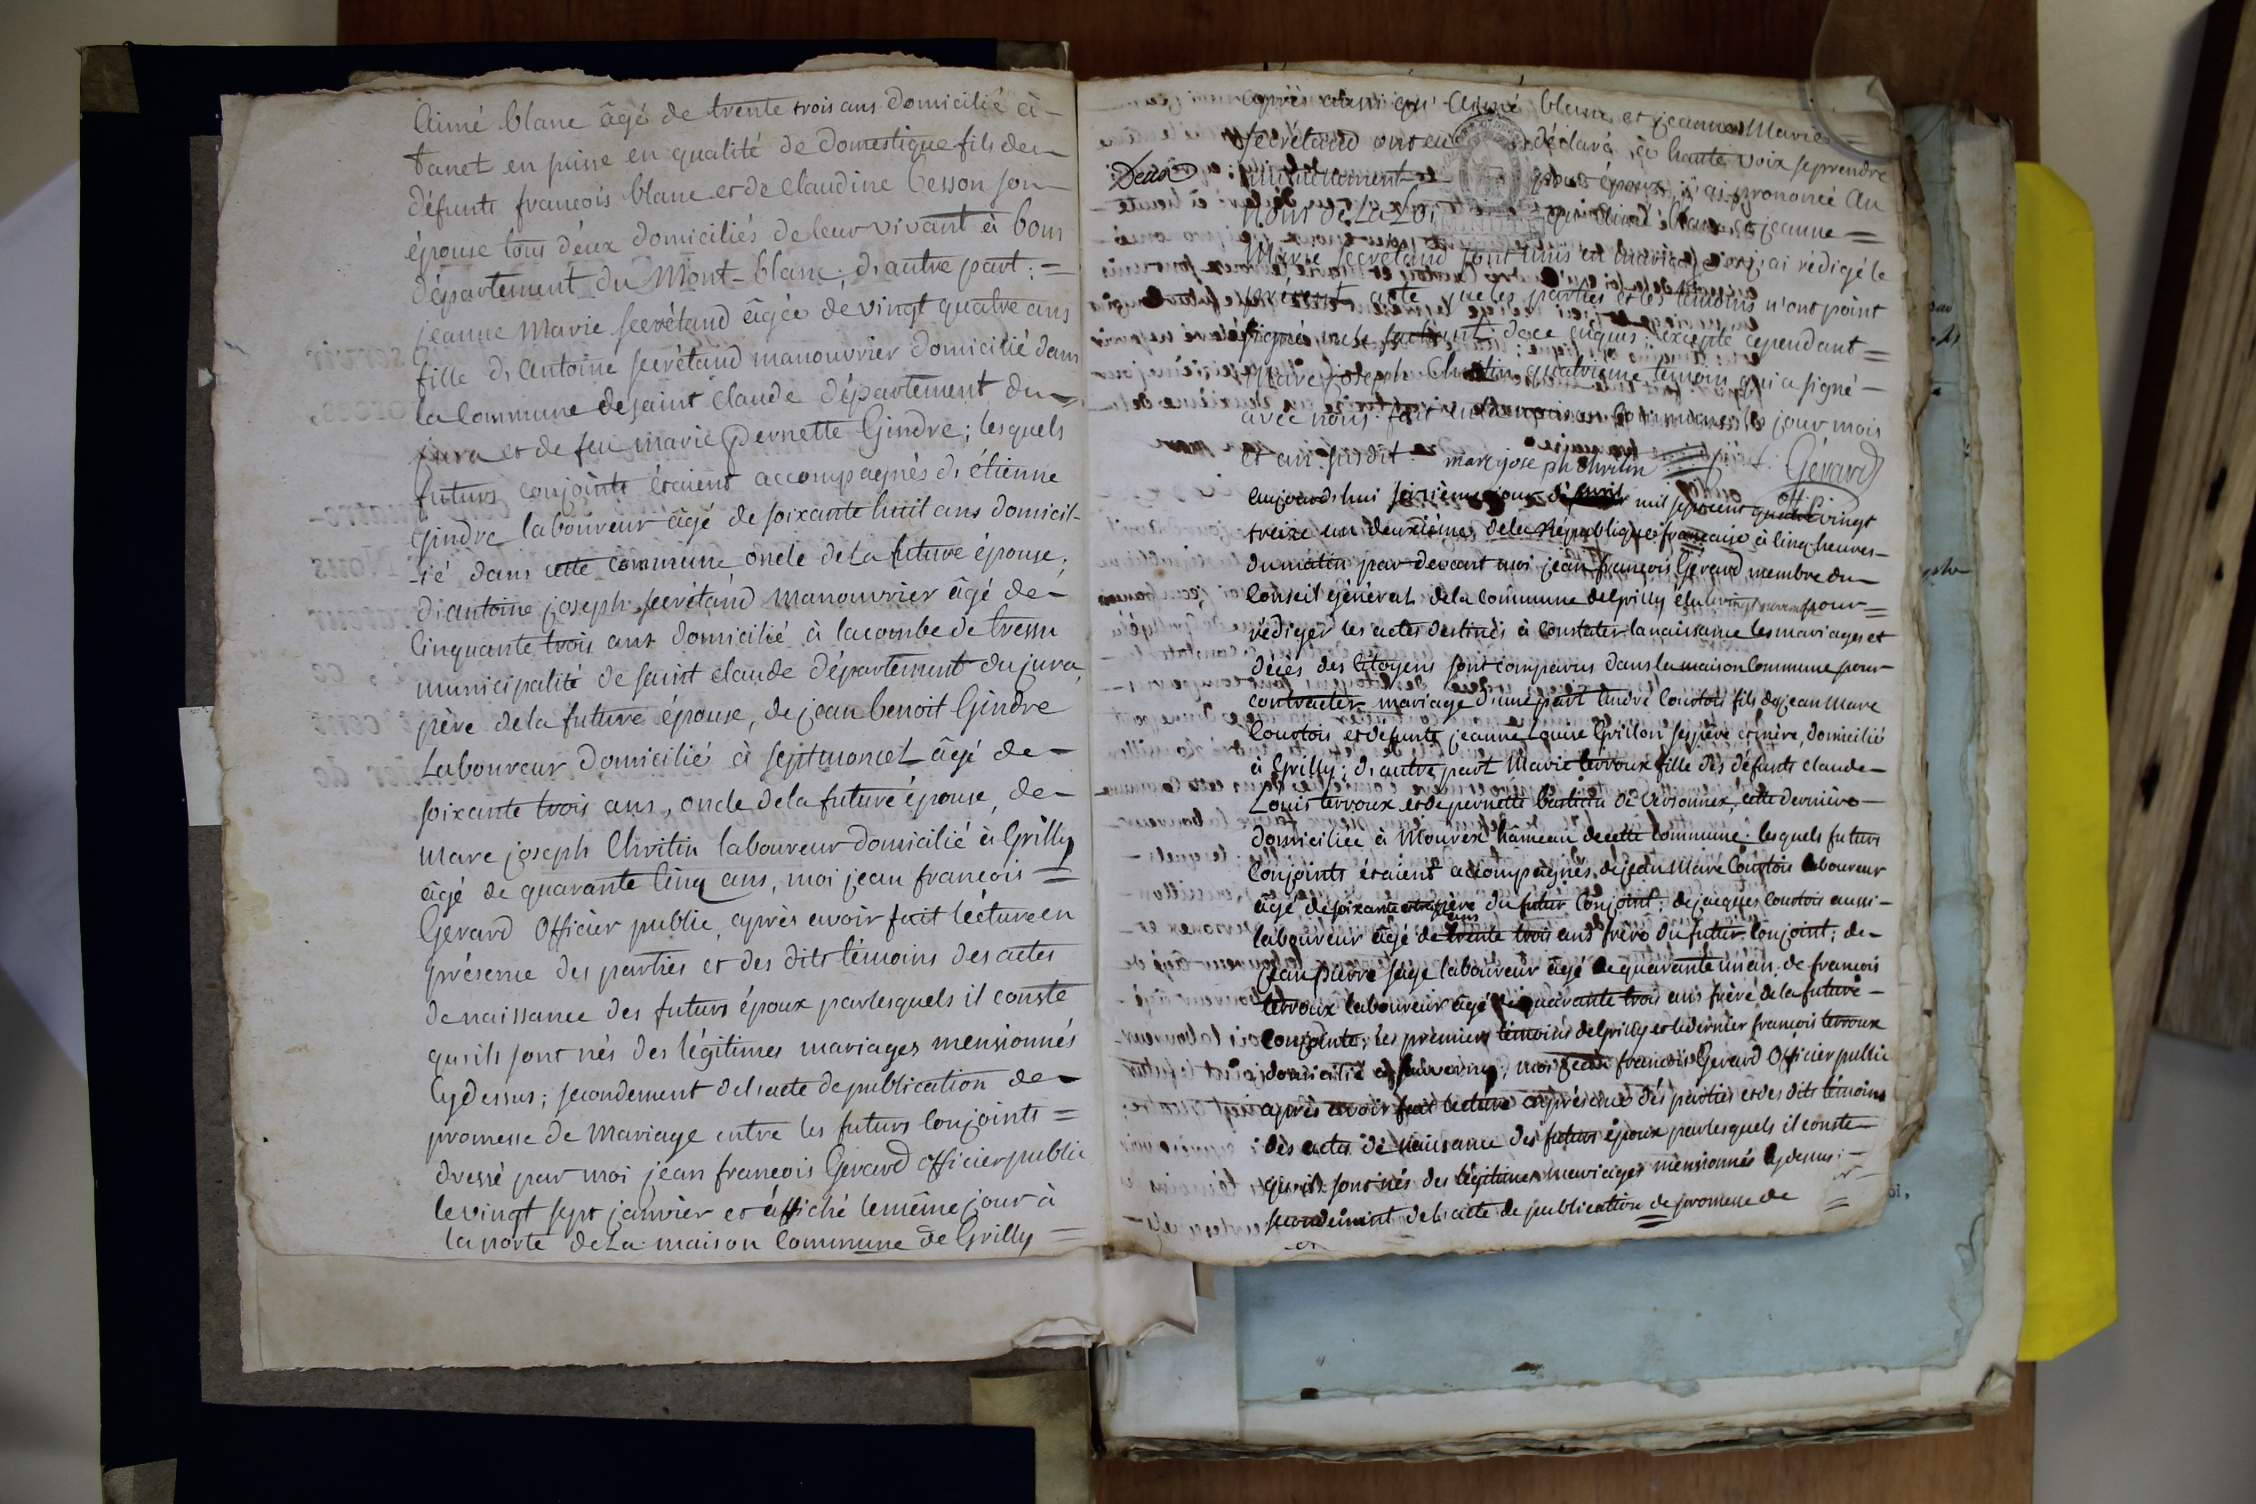 Aimé blanc âgé de trente trois ans domicilié à
tanet en suisse en qualité de domestique fils de
défunts françois blanc et de Claudine besson son
épouse tous deux domiciliés de leur vivant à bons
département du Mont-blanc; d'autre part; =
jeanne Marie secrétand âgée de vingt quatre ans
fille d'Antoine secrétand manouvrier domicilié dans
la Commune de saint Claude département du
jura et de feu marie pernette Gindre; lesquels
futurs conjoints étaient accompagnés d'étienne
Gindre laboureur âgé de soixante huit ans domicil-
-ié dans cette commune oncle de la future épouse;
d'antoine joseph secrétand manouvrier âgé de
Cinquante trois ans domicilié à la combe de tressu
municipalité de saint claude département du jura
père de la future épouse, de jean benoit Gindre
Laboureur domicilié à septmoncel âgé de
soixante trois ans, oncle de la future épouse, de
marc joseph Chritin laboureur domicilié à Grilly
âgé de quarante Cinq ans, moi jean françois =
Gerard Officier public, après avoir fait lécture en
présence des parties et des dits témoins des actes
de naissance des futurs époux par lesquels il conste
qu'ils sont nés des légitimes mariages mensionnés
Cydessus; secondement de l'acte de publication de
promesse de Mariage entre les futurs Conjoints =
dressé par moi jean françois Gerard officier public
le vingt sept janvier et affiché le même jour à
la porte de La maison Commune de Grilly =
après aussi qu' Aimé blanc et jeanne Marie =
secrétand ont eu déclaré à haute voix se prendre
Deux
mutuellement pour époux, j'ai prononcé Au
Nom de La Loi qu'Aimé blanc et jeanne =
Marie secrétand sont unis en mariage, et j'ai rédigé le
présent acte que les parties et les témoins n'ont point
signé ne le sachant de ce enquis; excepté cependant =
Marc joseph Chritin quatrième témoin qui a signé
avec nous. fait en la maison Commune les jour mois
et an susdit. marc joseph chritin Gerard
off.
Aujourd'hui seizième jour mil sept cent quatre vingt
treize an deuxième de la République française à Cinq heures
du matin par devant moi jean françois Gerard membre du
Conseil Général de la Commune de Grilly élu pour =
rédiger les actes destinés à constater la naissance les mariages et
décès des Citoyens sont comparus dans la maison Commune pour
contracter mariage d'une part André Courtois fils de jean Marc
Courtois et défunte jeanne Grillon ses père et mère, domicilié
à Grilly; d'autre part Marie terroux fille des défunts claude
Louis terroux et de pernette bastian de Versonnex, cette dernière
domiciliée à Mourex hâmeau de cette Commune. lesquels futurs
Conjoints étaient accompagnés, de jean Marc Courtois laboureur
âgé de soixante père du futur Conjoint; de jacques Courtois aussi
ans
laboureur âgé de trente trois ans frère du futur Conjoint; de
jean pierre sage laboureur âgé de quarante un an, de françois
terroux laboureur âgé de quarante trois ans frère de la future
conjointe; les premiers témoins de Grilly et le dernier françois terroux
domicilié à sauverny, moi jean françois Gerard Officier public
après avoir fait lecture en présence des parties et des dits témoins
des actes de naissance des futurs époux par lesquels il conste
qu'ils sont nés des légitimes mariages mensionnés Cydessus;
secondement de l'acte de publication de promesse de